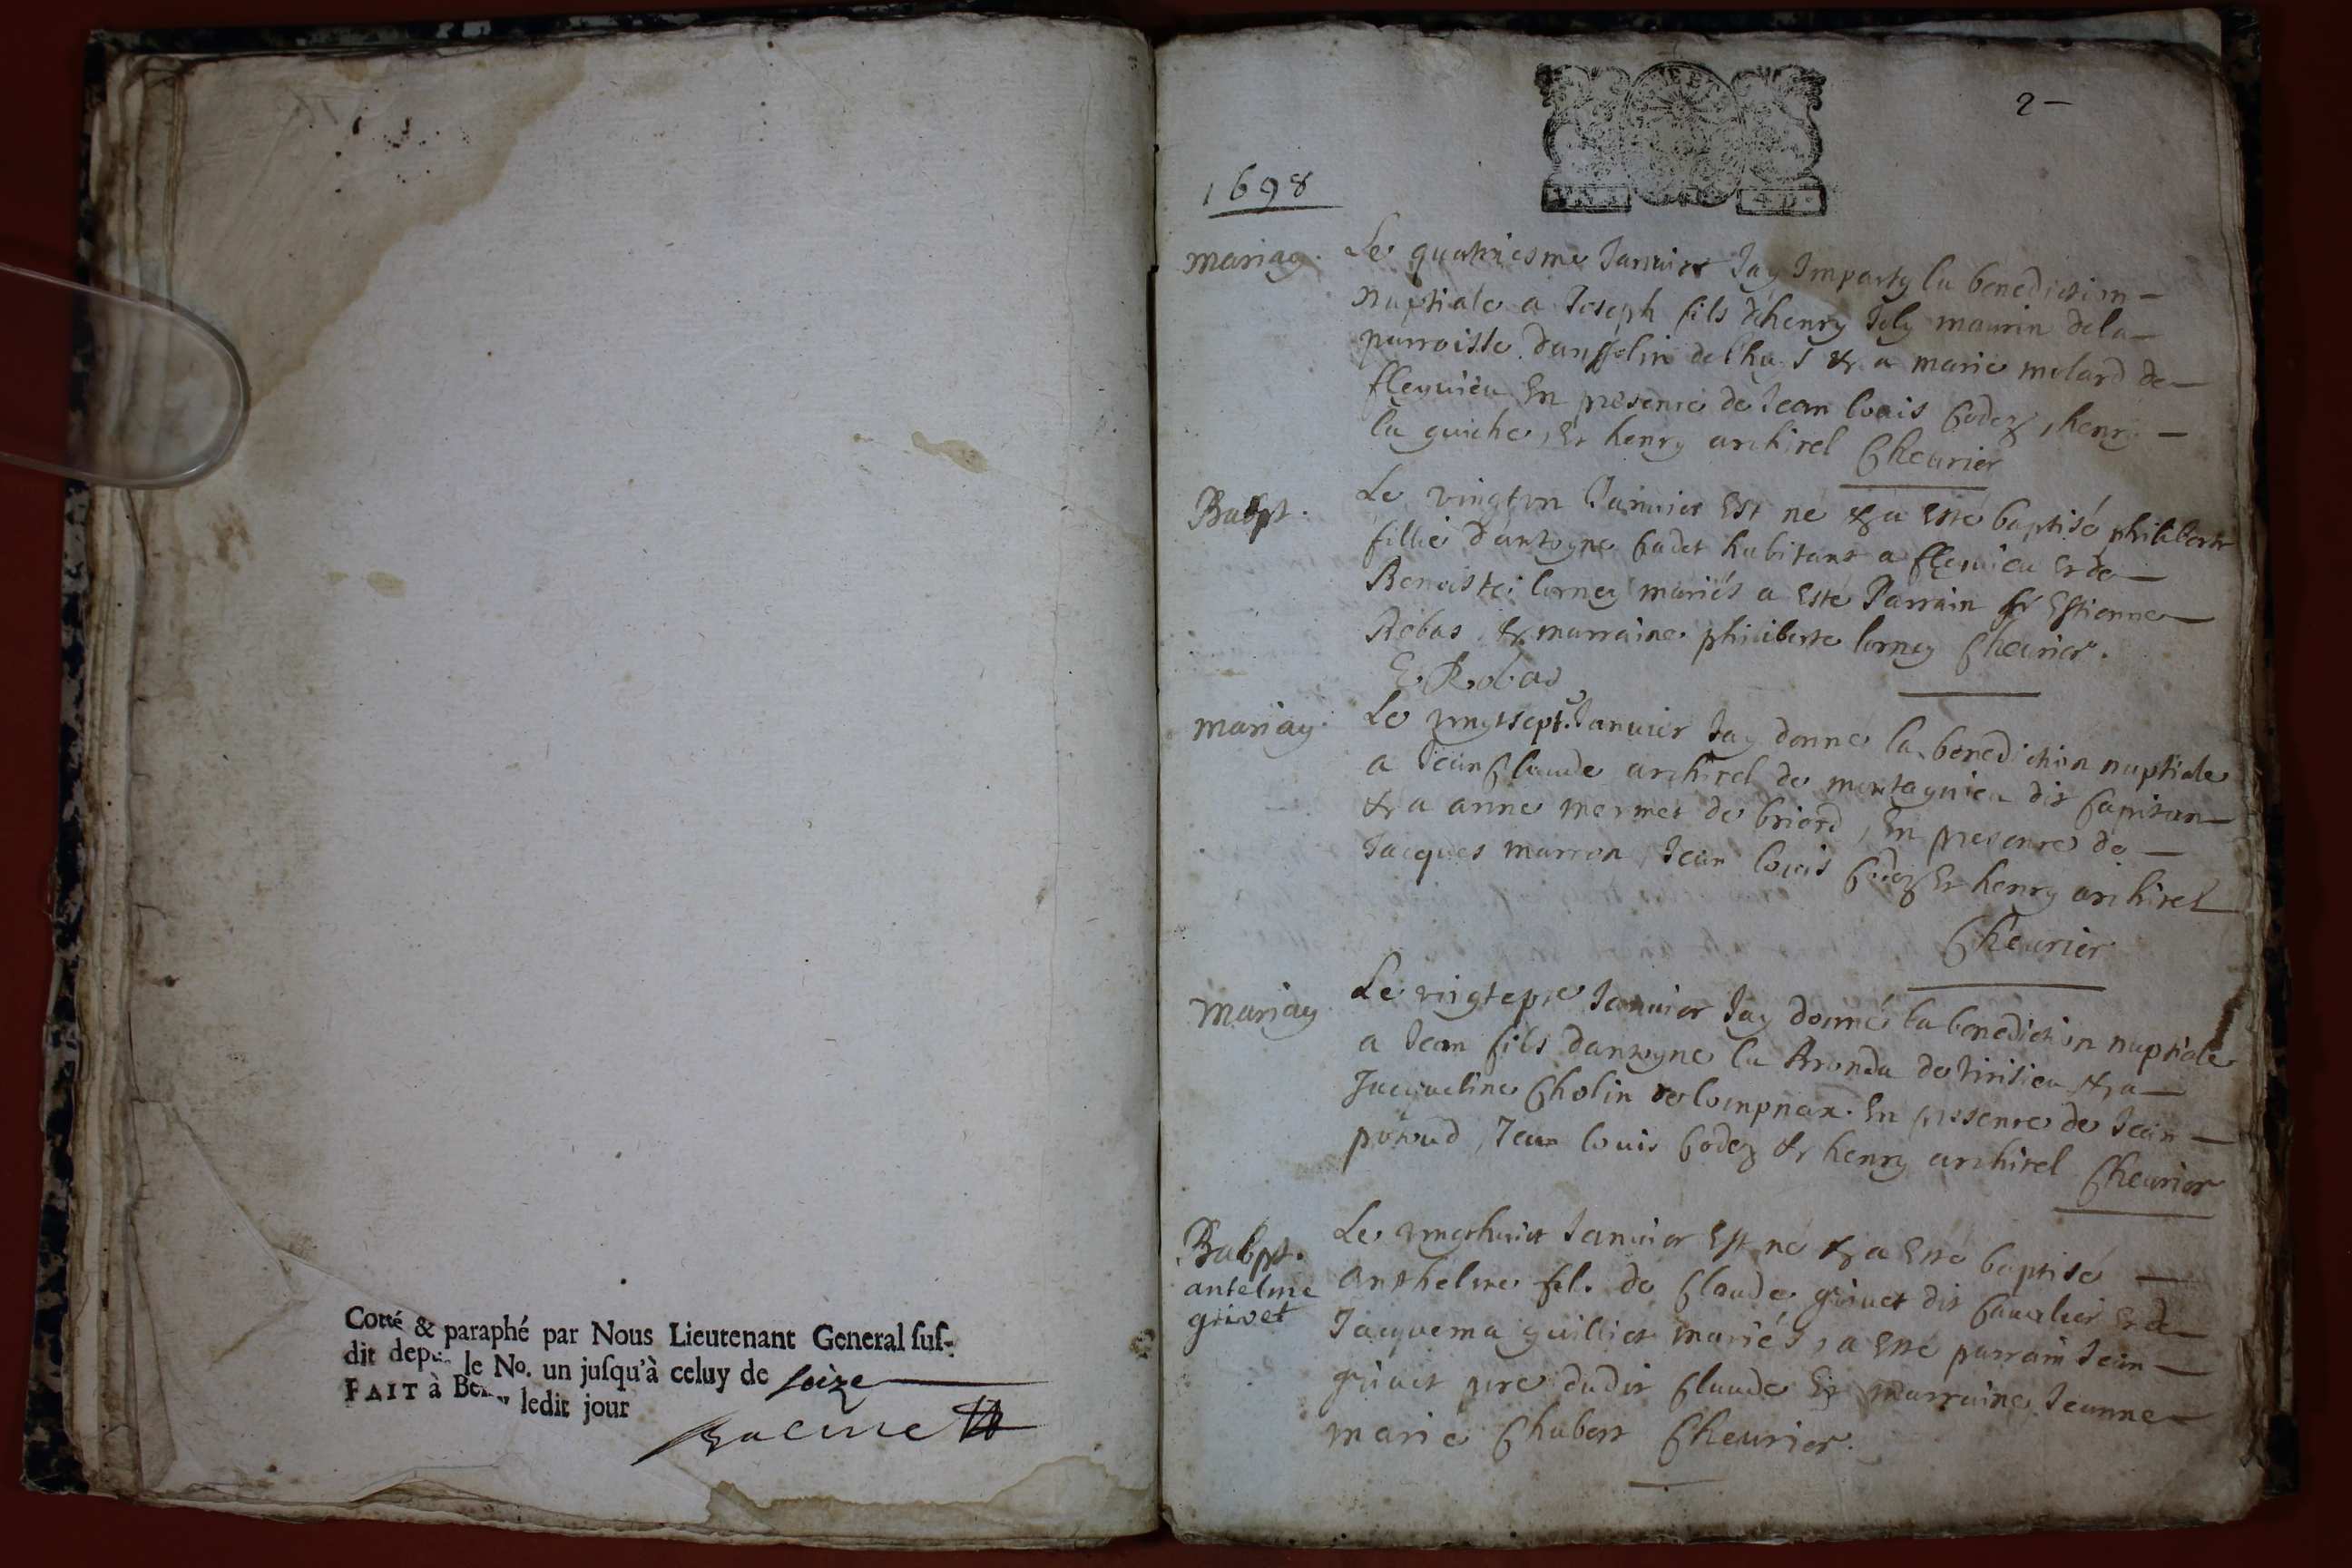 Cotté & paraphé par Nous Lieutenant General suſ-
dit depuis le No. un juſqu'à celuy de seize
FAIT à Belley ledit jour
2
1698
mariag. Le quatriesme Janvier Jay Imparty la benediction
nuptiale a Joseph fils dhenry Joly maurin dela
parroisse & a marie molard de
fleyuieu En presence de Jean louis Godez, henry
la guiche, Et henry archirel Cheurier
Babpt. Le vingtvn Januier Est né & a Esté baptisé philiberte
fillie dantoyne Cadet habitant a fleyuieu Et de
Benoiste lorney mariés a Esté Parrain Sr Estienne
Robas & marraine philiberte lorney Cheurier.
E Robas
mariag. Le vingtsept.e Januier Jay donne la benediction nuptiale
a Jean Claude archirel de montagnieu dit Capitan
& a anne mermet de briord, En presence de
Jacques marron, Jean louis Godez Et henry archirel
Cheurier
mariag Le vingtsept.e Januier Jay donné la benediction nuptiale
a Jean fils dantoyne la Aronda & a
Jacqueline Cholin de lompnax. En presence de Jean
poroud, Jean louis Godez & henry archirel Cheurier
Babpt. Le vingthuict Januier Est né & a Esté baptisé
antelme Anthelme fils de Claude griuet dit Caualier Et de
grivet Jacquema guilliet mariés, a Esté parrain Jean
griuet pere dudit Claude Et marraine Jeanne
marie Chabert Cheurier.